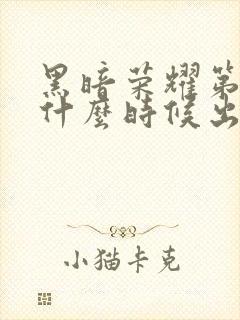 黑暗荣耀第
什麼時候出
小猫卡克